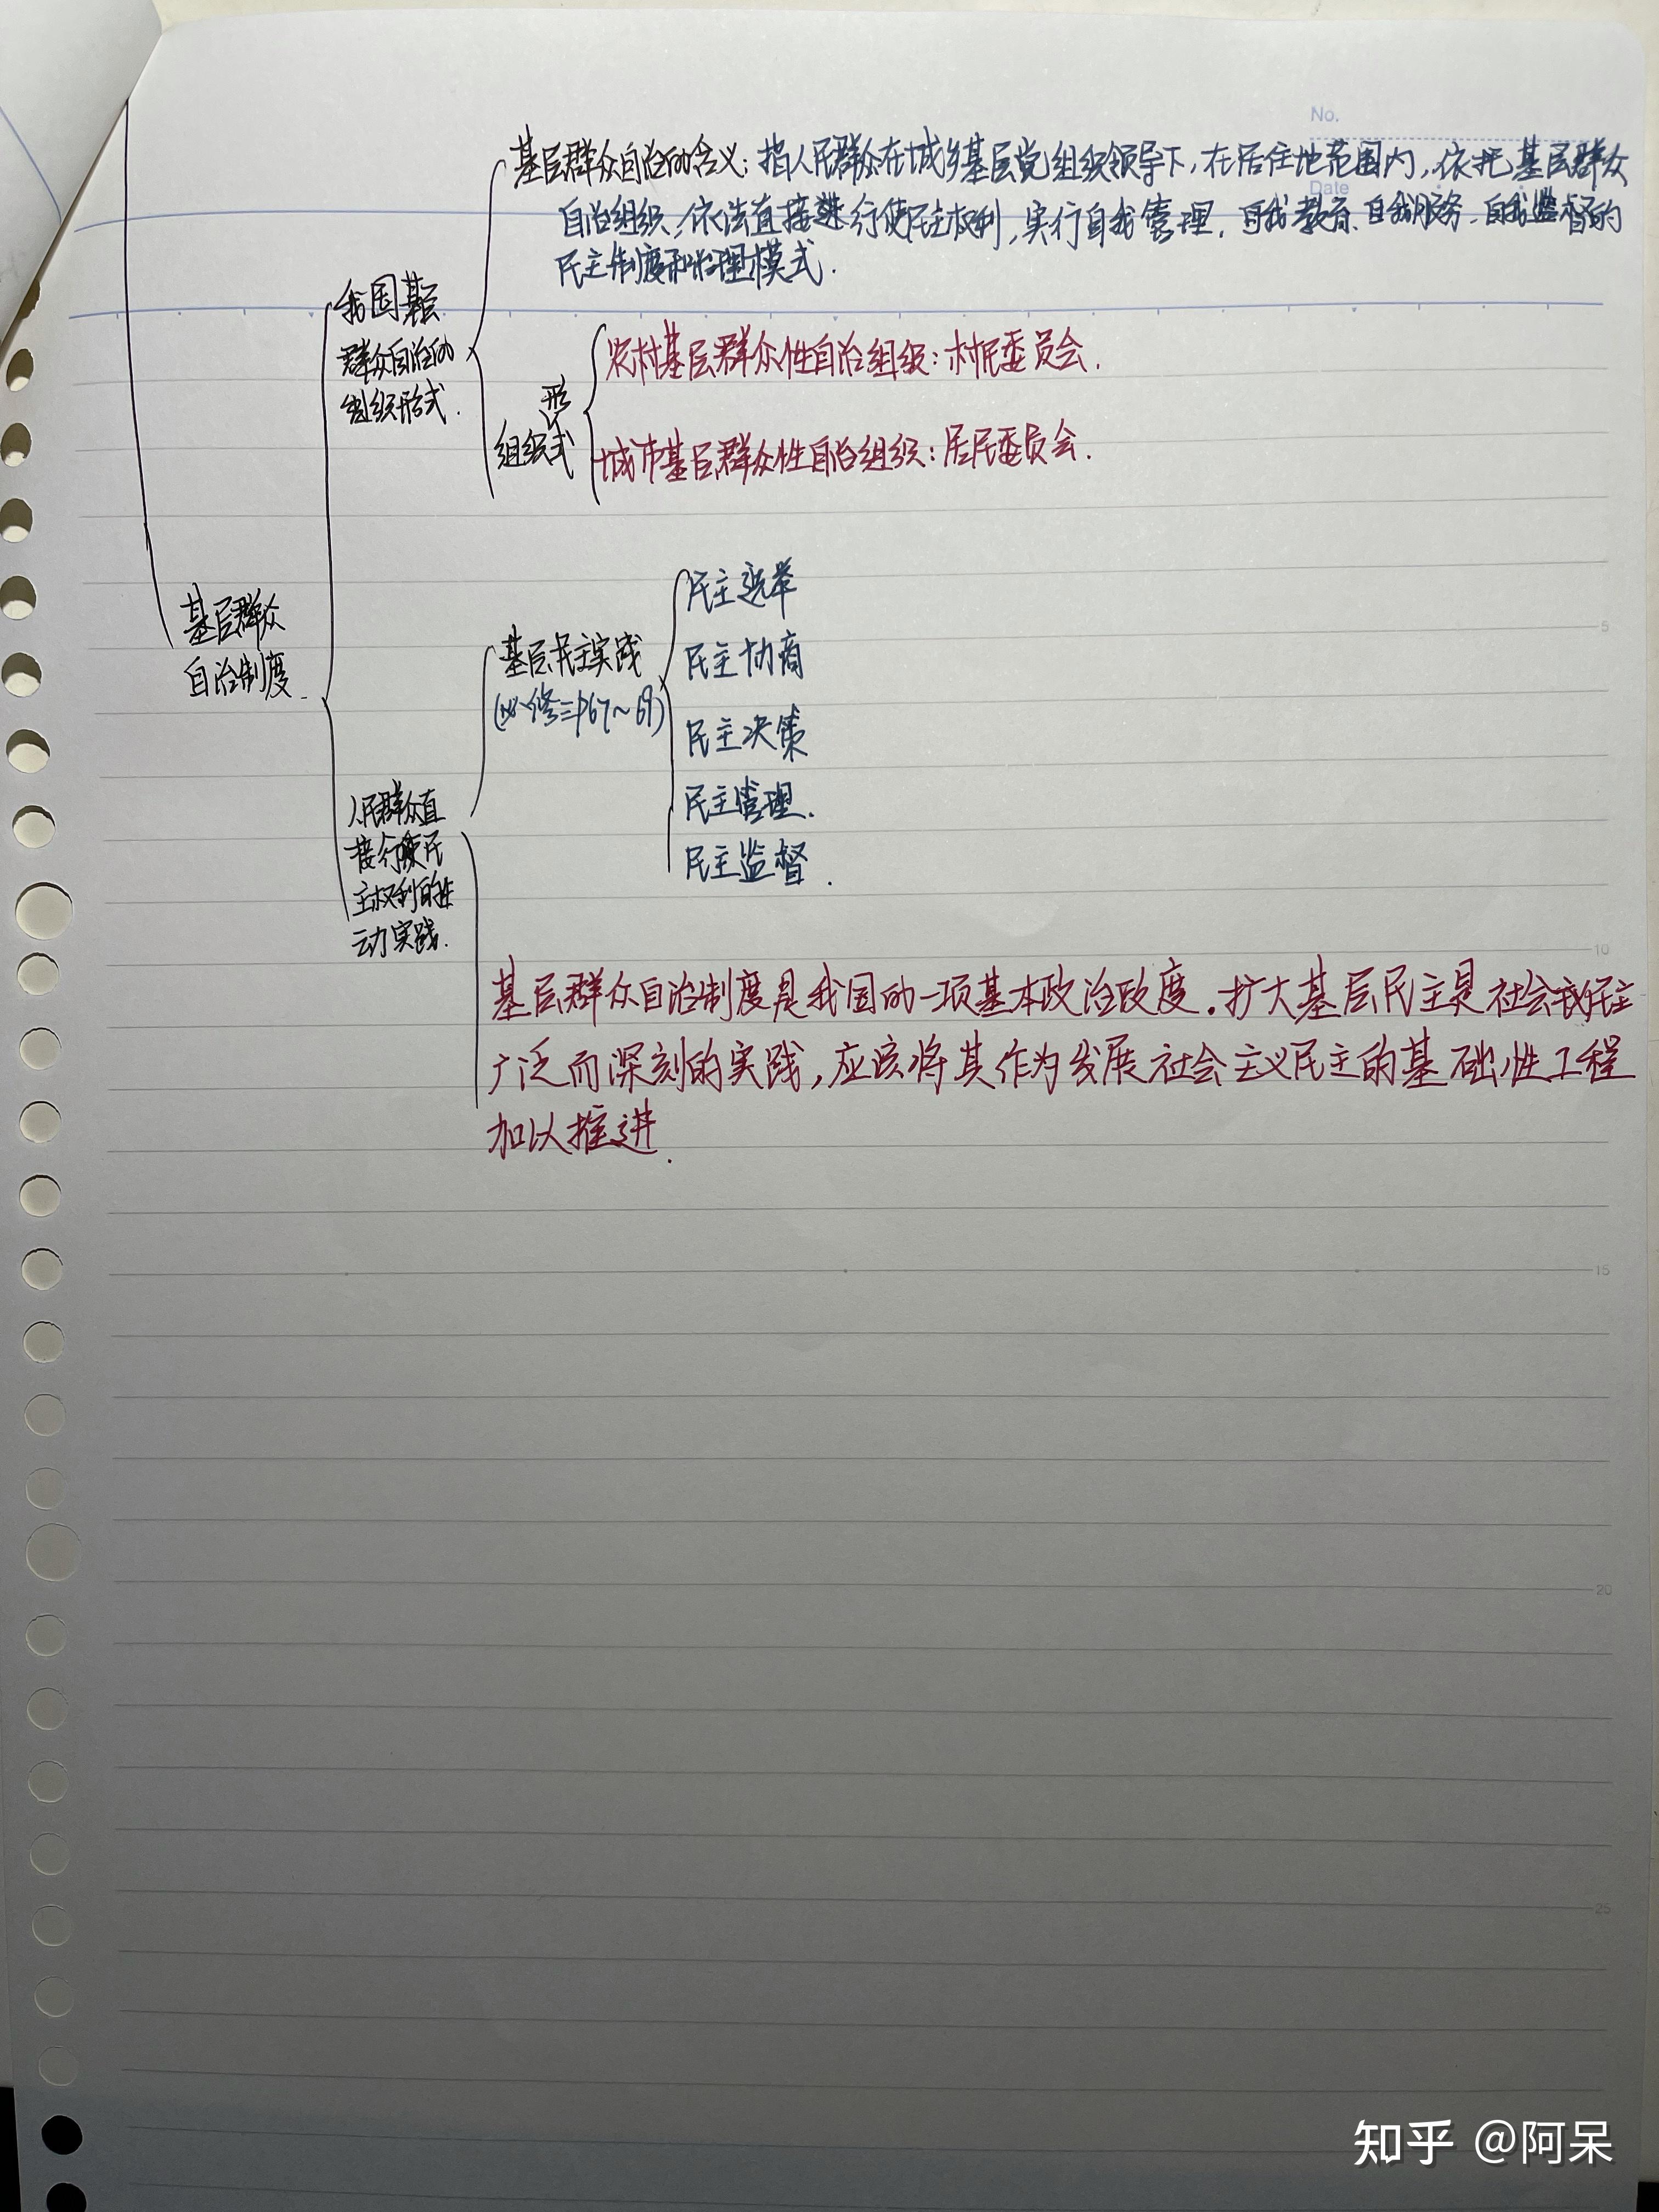 No.
Date
基层群众自治的含义：指人民群众在城乡基层党组织领导下，在居住地范围内，依托基层群众
自治组织，依法直接行使民主权利，实行自我管理、自我教育、自我服务、自我监督的
民主制度和治理模式.
我国基层
群众自治的
组织形式.
农村基层群众性自治组织：村民委员会.
形
组织式
城市基层群众性自治组织：居民委员会.
基层群众
自治制度.
基层民主实践
(必修三P67~69)
民主选举
民主协商
民主决策
民主管理.
民主监督.
人民群众直
接行使民
主权利的生
动实践.
基层群众自治制度是我国的一项基本政治政度.扩大基层民主是社会主义民主
广泛而深刻的实践,应该将其作为发展社会主义民主的基础性工程
加以推进.
5
10
15
20
25
知乎 @阿呆